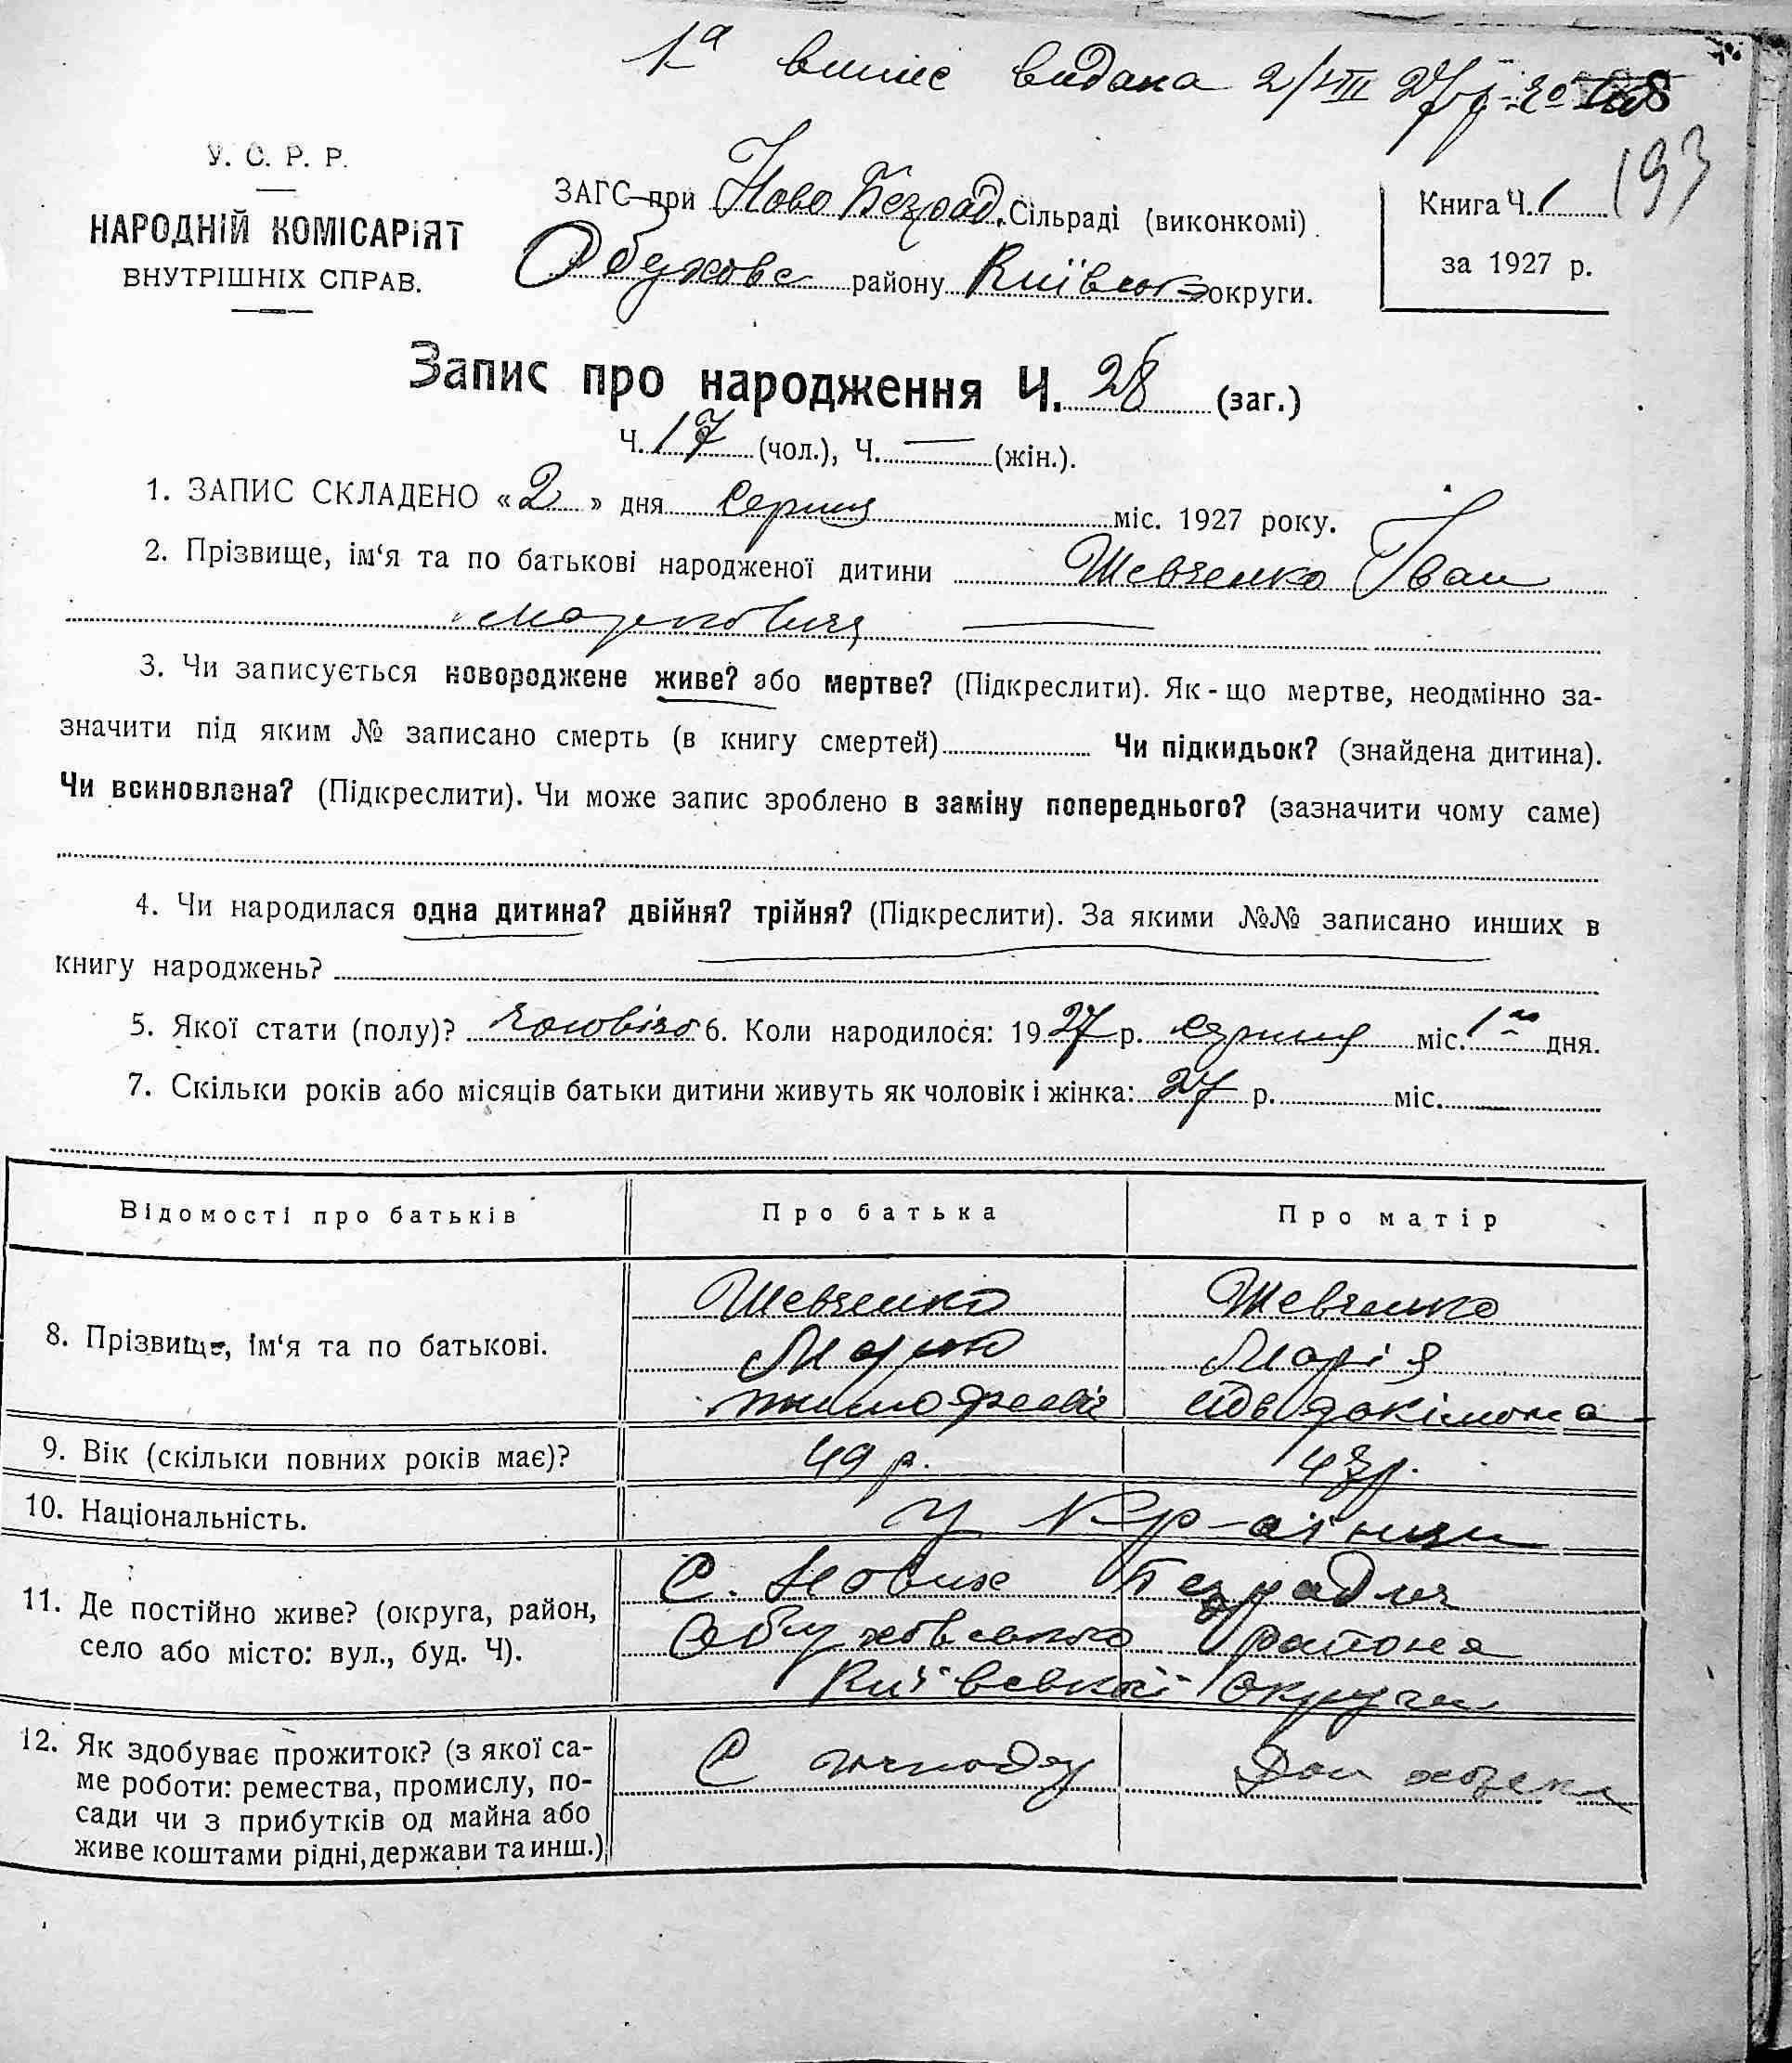 1а випис видана 2/VIII 27 р.
193
У. С. Р. Р.
НАРОДНІЙ КОМІСАРІЯТ
ВНУТРІШНІХ СПРАВ.
ЗАГС при Ново Безрад. Сільраді (виконкомі).
Обухове району Київськ округи.
Книга Ч. 1
за 1927 р.
Запис про народження Ч. 28 (заг.)
Ч. 17 (чол.), Ч. — (жін.).
1. ЗАПИС СКЛАДЕНО «2» дня Серпня міс. 1927 року.
2. Прізвище, ім‘я та по батькові народженої дитини Шевченко Іван
Маркович —
3. Чи записується новороджене живе? або мертве? (Підкреслити). Як-що мертве, неодмінно за-
значити під яким № записано смерть (в книгу смертей) Чи підкидьок? (знайдена дитина).
Чи всиновлена? (Підкреслити). Чи може запис зроблено в заміну попереднього? (зазначити чому саме)
4. Чи народилася одна дитина? двійня? трійня? (Підкреслити). За якими №№ записано инших в
книгу народжень?
5. Якої стати (полу)? 6. Коли народилося: 1927 р. серпня міс. 1го дня.
7. Скільки років або місяців батьки дитини живуть як чоловік і жінка: 27 р. міс.
Відомості про батьків Про батька Про матір
8. Прізвище, ім‘я та по батькові.
Шевченко Шевченко
Марко Марія
Тимофеевіч Євдокімова
9. Вік (скільки повних років має)? 49 р. 43 р.
10. Національність. Укр-аїнци
11. Де постійно живе? (округа, район,
село або місто: вул., буд. Ч).
С. Нових Безрадич
Обуховського района
Київської округи
12. Як здобуває прожиток? (з якої са-
ме роботи: ремества, промислу, по-
сади чи з прибутків од майна або
живе коштами рідні, держави та инш.)
С Дом